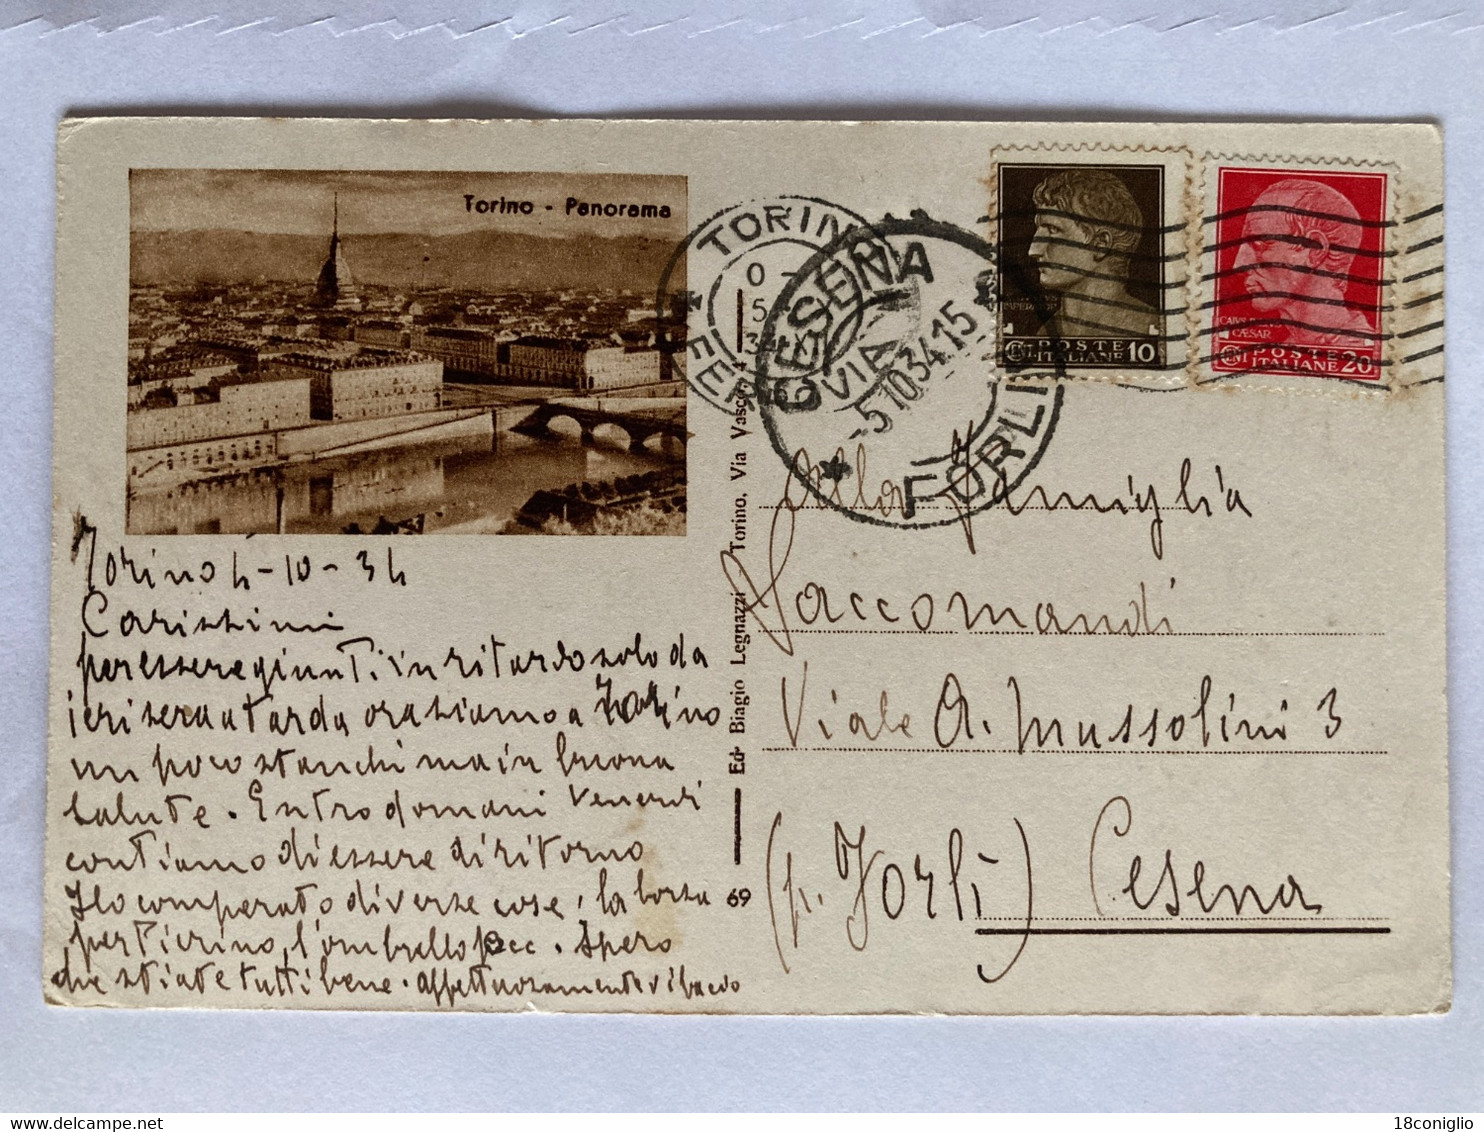 Torino - Panorama
TORINO
FERR
CESENA
VIA
-5 10.34.15
FORLI
POSTE
ITALIANE 10
CAIVS
CÆSAR
POSTE
ITALIANE 20
Torino 4-10-34
Carissimi
per essere giunti in ritardo solo da
ieri sera a tarda ora siamo a Torino
un poco stanchi ma in buona
salute. Entro domani Venerdi
contiamo di essere di ritorno
Ho comperato diverse cose, la borsa
per Tierino, l'ombrello, ecc. Spero
che stiate tutti bene. affettuosamente vi bacio
Ed. Biagio Legnazzi Torino, Via Vasco, 4
69
Alla Famiglia
Saccomandi
Viale A. Mussolini 3
(p. Forlì) Cesena
18coniglio